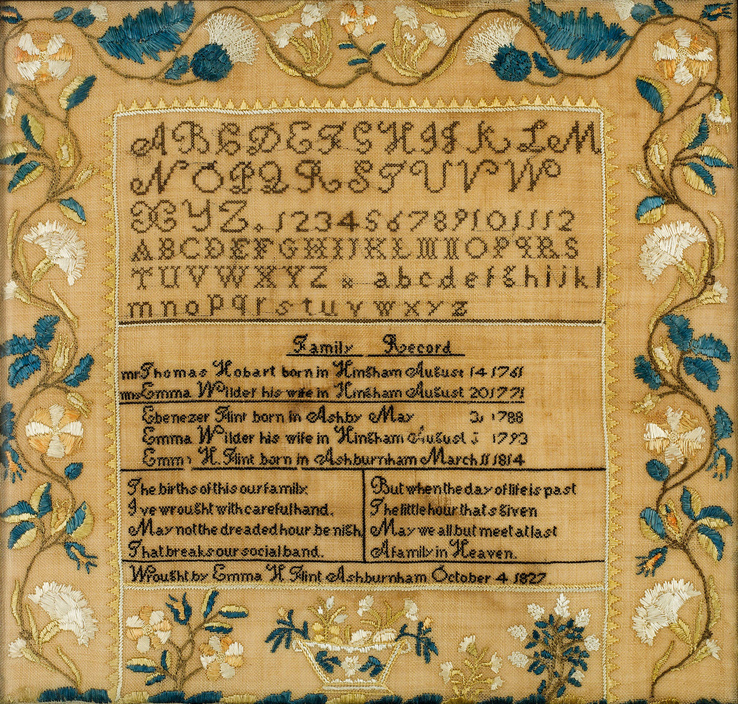 A B C D E F G H I J K L M
N O P Q R S T U V W
X Y Z . 1 2 3 4 5 6 7 8 9 10 11 12
A B C D E F G H I J K L M N O P Q R S
T U V W X Y Z a b c d e f g h i j k l
m n o p q r s t u v w x y z
Family Record
mr Thomas Hobart born in Hingham August 14 1761
mrs Emma Wilder his wife in Hingham August 20 1771
Ebenezer Flint born in Ashby May 3, 1788
Emma Wilder his wife in Hingham August 1793
Emm H. Flint born in Ashburnham March 11 1814
The births of this our family
I've wrought with careful hand.
May not the dreaded hour be nigh
That breaks our social band.
But when the day of life is past
The little hour that's given
May we all but meet at last
A family in Heaven.
Wrought by Emma H. Flint Ashburnham October 4 1827.